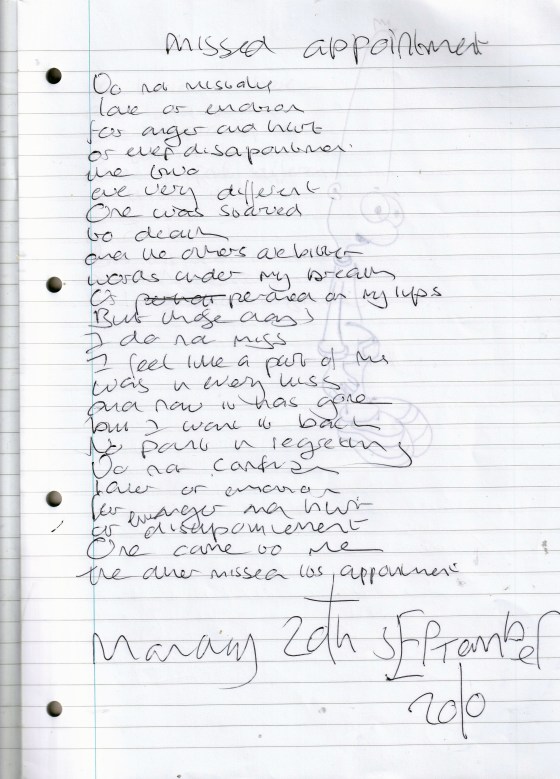 missed appointment
Do not mistake
love or emotion
for anger and hurt
or even disapointment.
the two
are very different
One was starved
to death
and the others are bitter
words under my breath
Or on my lips
But those days
I do not miss
I feel like a part of me
was in every kiss
and now it has gone
but I want it back
No point in regretting
Do not confuse
love or emotion
for even anger and hurt
or disapointement
One came to me
the other missed its appointment
Monday 20th SEPTember
2010